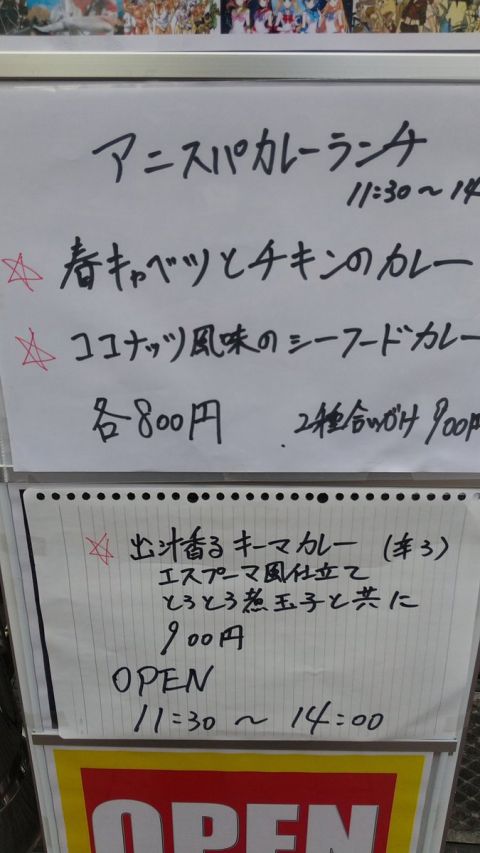 アニスパカレーランチ
11:30～14
☆ 春キャベツとチキンのカレー
☆ ココナッツ風味のシーフードカレー
各800円 2種合いがけ 900円
☆ 出汁香るキーマカレー (辛3)
エスプーマ風仕立て
とろとろ煮玉子と共に
900円
OPEN
11:30 ～ 14:00
OPEN